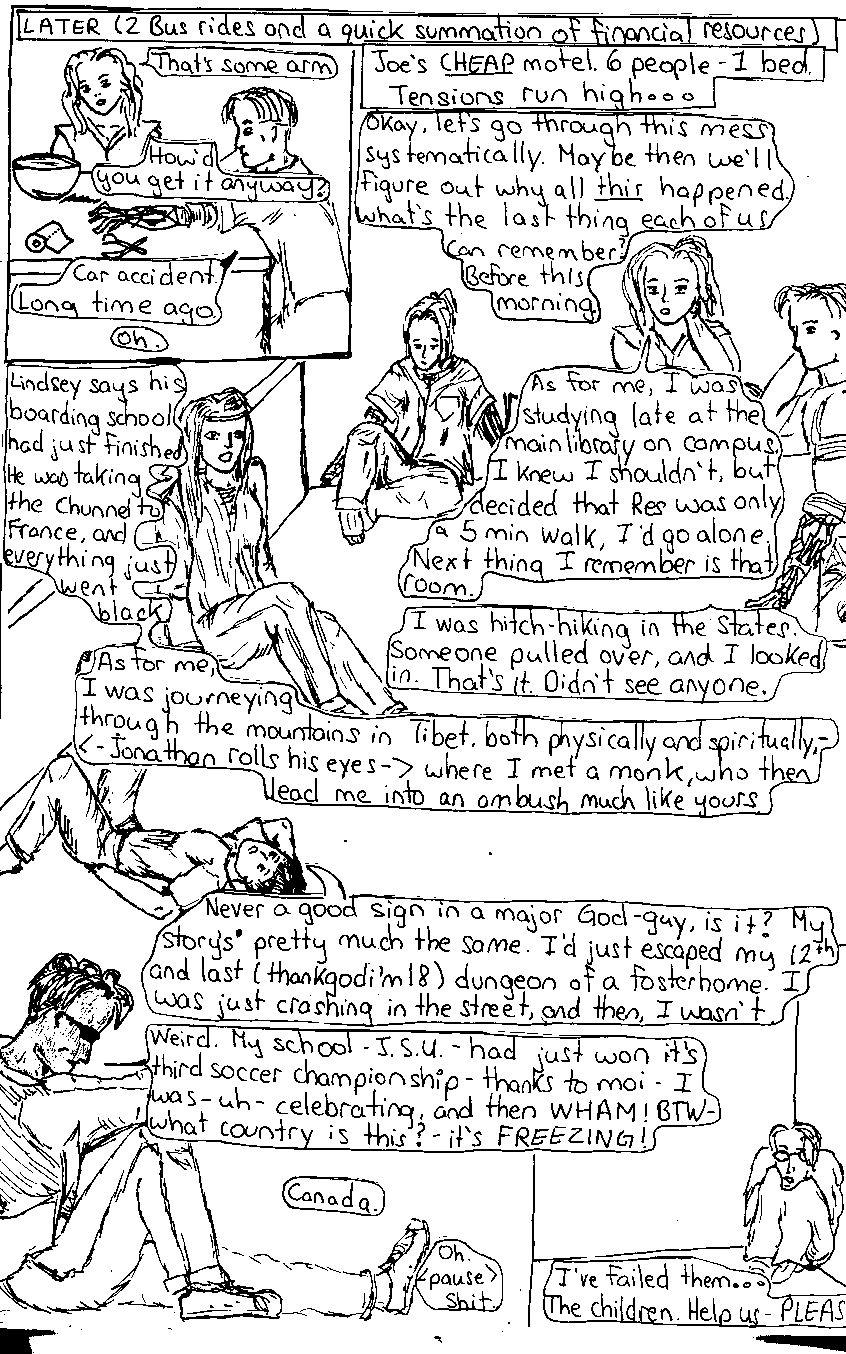 LATER (2 Bus rides and a quick summation of financial resources)
That's some arm
How'd
you get it anyway?
Car accident
Long time ago
Oh.
Joe's CHEAP motel. 6 people - 1 bed.
Tensions run high...
Okay, let's go through this mess
systematically. Maybe then we'll
figure out why all this happened.
what's the last thing each of us
can remember?
Before this
morning.
As for me, I was
studying late at the
main library on campus.
I knew I shouldn't, but
decided that Res was only
a 5 min walk, I'd go alone.
Next thing I remember is that
room.
I was hitch-hiking in the States.
Someone pulled over, and I looked
in. That's it. Didn't see anyone.
Lindsey says his
boarding school
had just finished
He was taking
the Chunnel to
France, and
everything just
went
black
As for me,
I was journeying
through the mountains in Tibet, both physically and spiritually,-
<- Jonathan rolls his eyes -> where I met a monk, who then
lead me into an ambush much like yours
Never a good sign in a major God-guy, is it? My
story's pretty much the same. I'd just escaped my 12th
and last (thankgodi'm18) dungeon of a fosterhome. I
was just crashing in the street, and then, I wasn't.
Weird. My school - J.S.U. - had just won it's
third soccer championship - thanks to moi - I
was - uh - celebrating, and then WHAM! BTW-
what country is this? - it's FREEZING!
Canada.
Oh.
pause>
Shit.
I've failed them...
The children. Help us - PLEAS